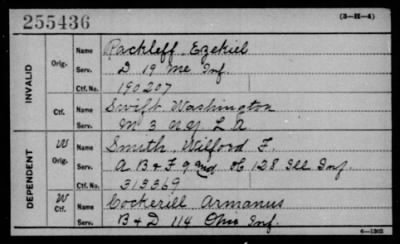 255436 (3-H-4)
INVALID Orig. Name Rackleff, Ezekiel
Serv. D 19 Me Inf.
Ctf. No. 190207
Ctf. Name Swift Washington
Serv. M 3 N.Y. L A
DEPENDENT W Orig. Name Smith, Wilford F.
Serv. A B & F 92nd & C 128 Ill Inf.
Ctf. No. 313369
W Ctf. Name Cockerill Armanus
Serv. B & D 114 Ohio Inf.
6-1303